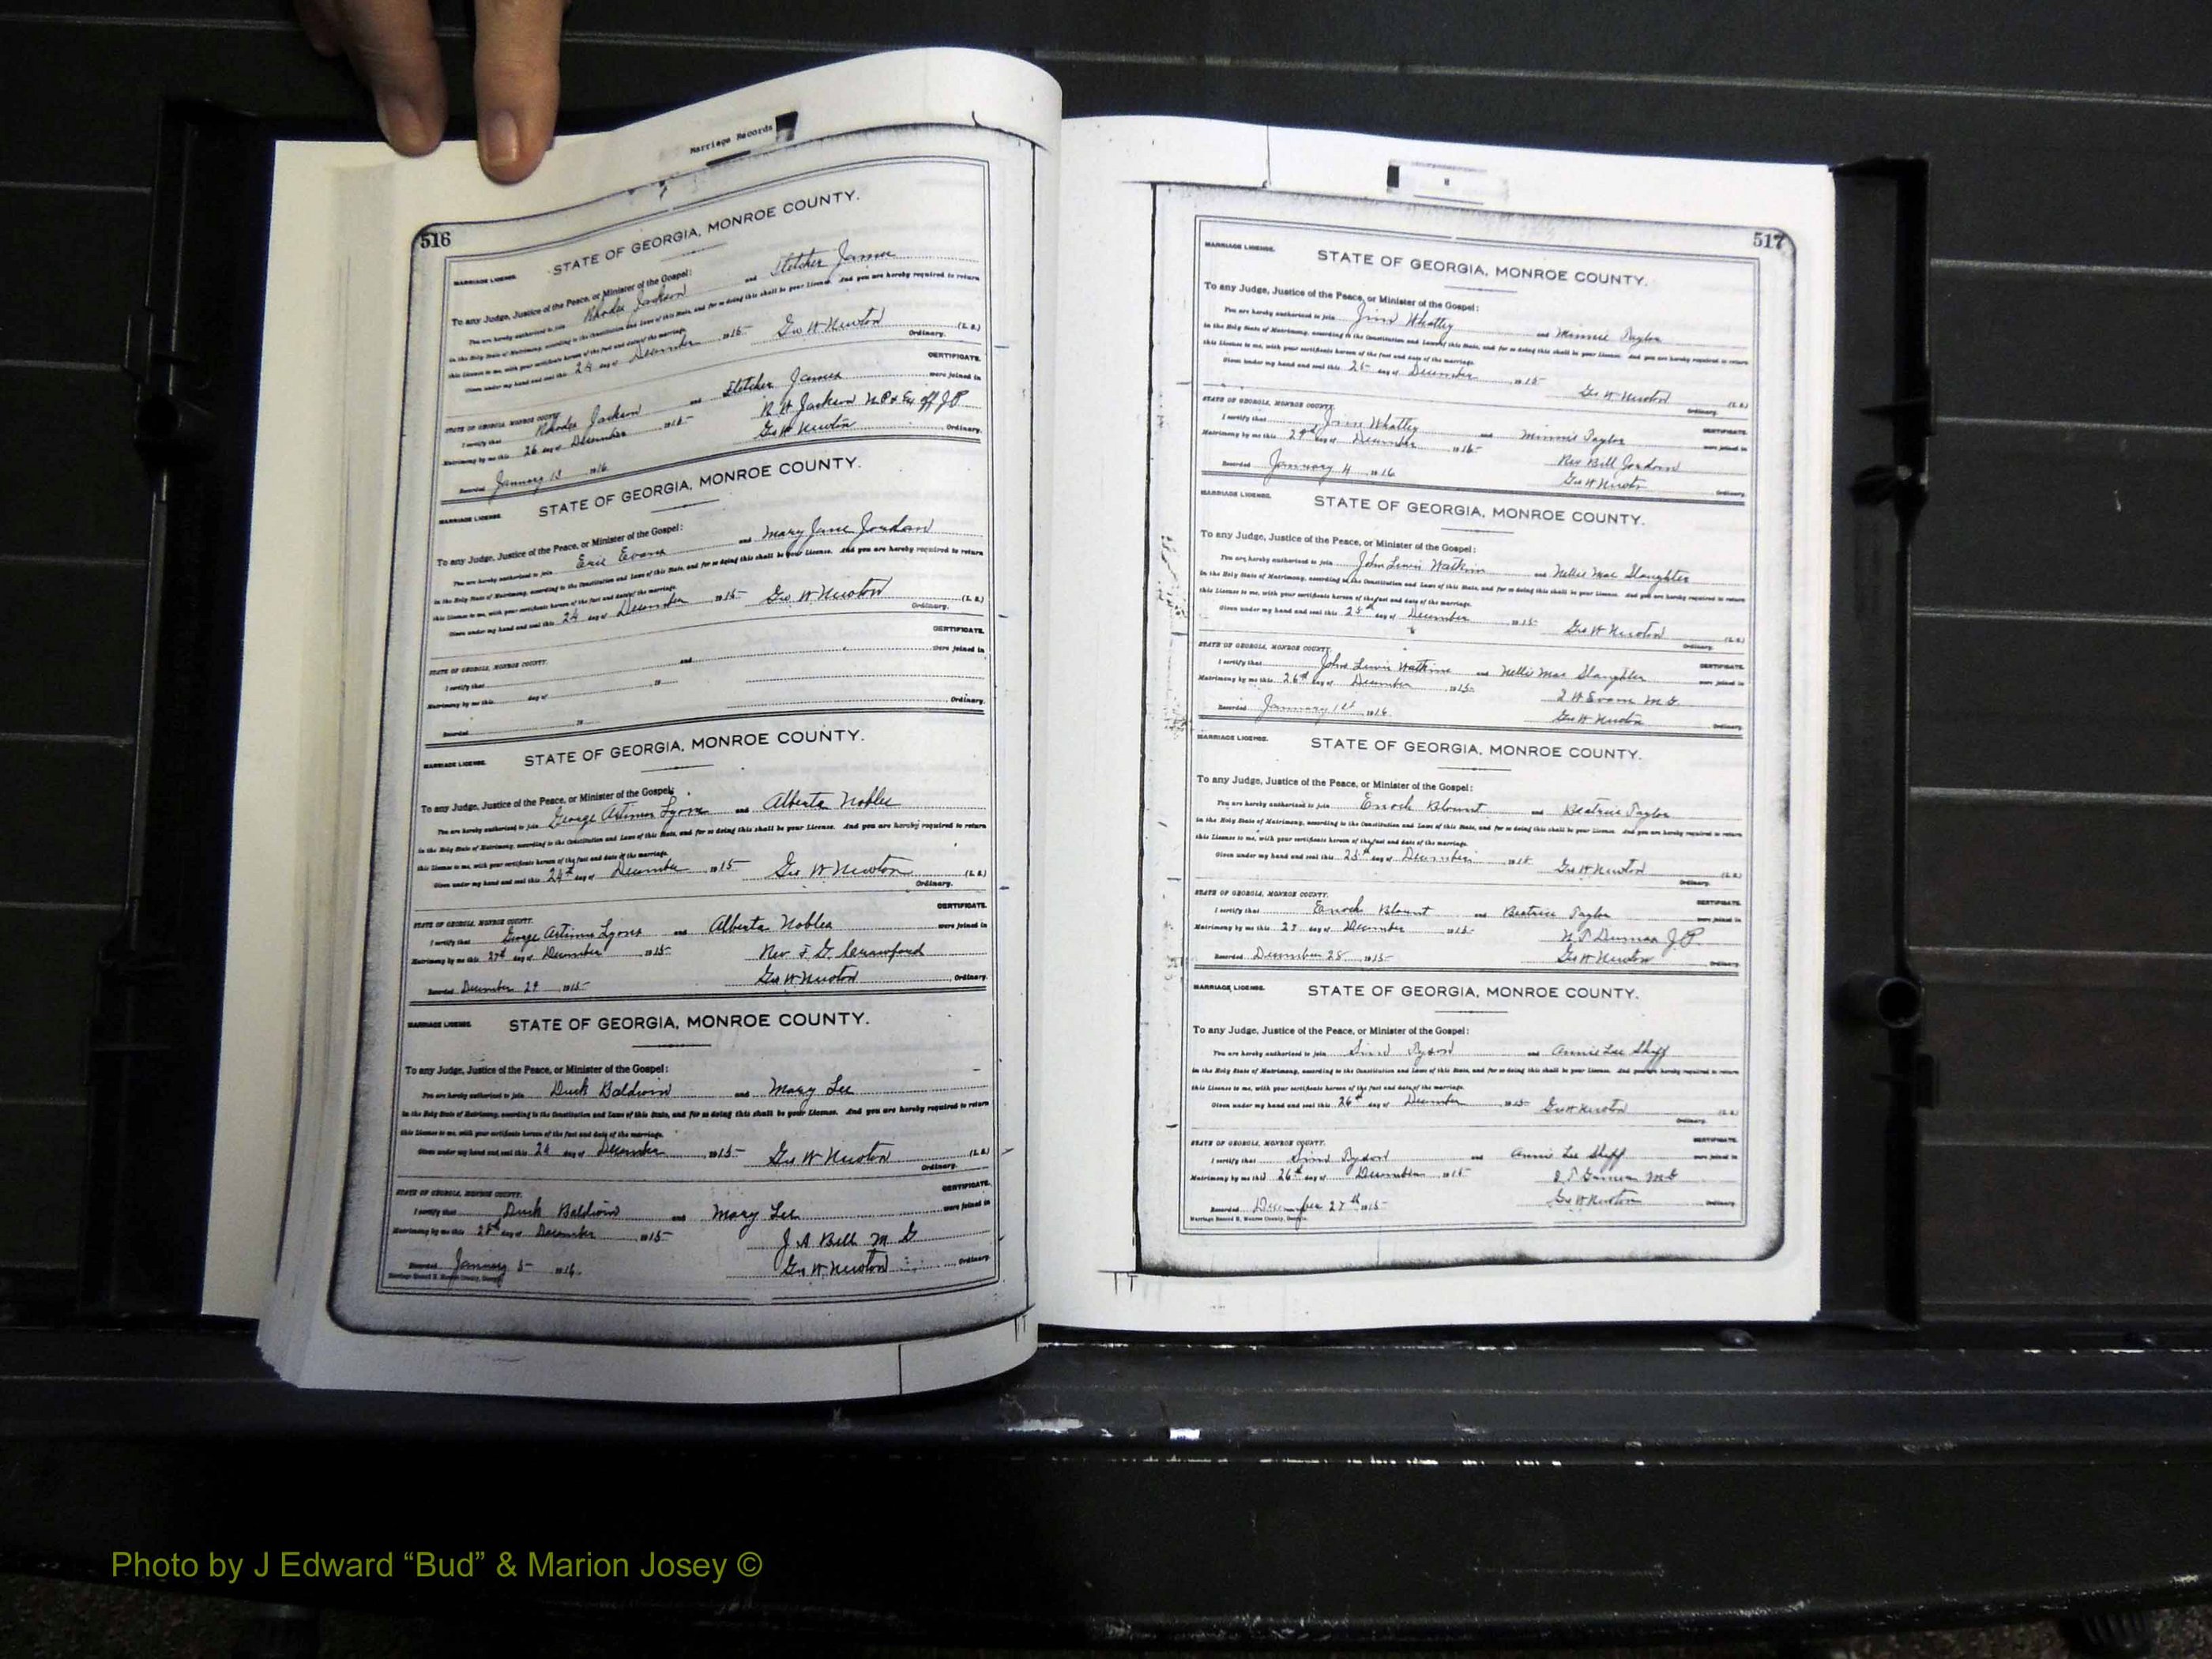 Marriage Records
516
MARRIAGE LICENSE.
STATE OF GEORGIA, MONROE COUNTY.
To any Judge, Justice of the Peace, or Minister of the Gospel:
You are hereby authorized to join Rhodes Jackson and Fletcher James
in the Holy State of Matrimony, according to the Constitution and Laws of this State, and for so doing this shall be your License. And you are hereby required to return
this License to me, with your certificate hereon of the fact and date of the marriage.
Given under my hand and seal this 24 day of December 1915 Geo W Newton (L. S.)
Ordinary.
CERTIFICATE.
STATE OF GEORGIA, MONROE COUNTY.
I certify that Rhodes Jackson and Fletcher James were joined in
Matrimony by me this 26 day of December 1915 R H Jackson N.P. & Ex off J P
Recorded January 13 1916 Geo W Newton Ordinary.
MARRIAGE LICENSE.
STATE OF GEORGIA, MONROE COUNTY.
To any Judge, Justice of the Peace, or Minister of the Gospel:
You are hereby authorized to join Eric Evans and Mary Jane Jordan
in the Holy State of Matrimony, according to the Constitution and Laws of this State, and for so doing this shall be your License. And you are hereby required to return
this License to me, with your certificate hereon of the fact and date of the marriage.
Given under my hand and seal this 24 day of December 1915 Geo W Newton (L. S.)
Ordinary.
CERTIFICATE.
STATE OF GEORGIA, MONROE COUNTY.
I certify that and were joined in
Matrimony by me this day of 19
Recorded 19 Ordinary.
MARRIAGE LICENSE.
STATE OF GEORGIA, MONROE COUNTY.
To any Judge, Justice of the Peace, or Minister of the Gospel:
You are hereby authorized to join George Artimus Lyons and Alberta Nobles
in the Holy State of Matrimony, according to the Constitution and Laws of this State, and for so doing this shall be your License. And you are hereby required to return
this License to me, with your certificate hereon of the fact and date of the marriage.
Given under my hand and seal this 24th day of December 1915 Geo W Newton (L. S.)
Ordinary.
CERTIFICATE.
STATE OF GEORGIA, MONROE COUNTY.
I certify that George Artimus Lyons and Alberta Nobles were joined in
Matrimony by me this 27th day of December 1915 Rev F. G. Crawford
Recorded December 29 1915 Geo W Newton Ordinary.
MARRIAGE LICENSE.
STATE OF GEORGIA, MONROE COUNTY.
To any Judge, Justice of the Peace, or Minister of the Gospel:
You are hereby authorized to join Duck Baldwin and Mary Lee
in the Holy State of Matrimony, according to the Constitution and Laws of this State, and for so doing this shall be your License. And you are hereby required to return
this License to me, with your certificate hereon of the fact and date of the marriage.
Given under my hand and seal this day of December 1915 Geo W Newton (L. S.)
Ordinary.
CERTIFICATE.
STATE OF GEORGIA, MONROE COUNTY.
I certify that Duck Baldwin and Mary Lee were joined in
Matrimony by me this 28th day of December 1915 J. A Bell M G
Recorded January 5 1916 Geo W Newton Ordinary.
517
MARRIAGE LICENSE.
STATE OF GEORGIA, MONROE COUNTY.
To any Judge, Justice of the Peace, or Minister of the Gospel:
You are hereby authorized to join Jim Whatley and Minnie Taylor
in the Holy State of Matrimony, according to the Constitution and Laws of this State, and for so doing this shall be your License. And you are hereby required to return
this License to me, with your certificate hereon of the fact and date of the marriage.
Given under my hand and seal this 25 day of December 1915
Geo W Newton (L. S.)
Ordinary.
STATE OF GEORGIA, MONROE COUNTY. CERTIFICATE.
I certify that Jim Whatley and Minnie Taylor were joined in
Matrimony by me this day of December 1915 Rev Bill Jordan
Recorded January 4 1916 Geo W Newton Ordinary.
MARRIAGE LICENSE.
STATE OF GEORGIA, MONROE COUNTY.
To any Judge, Justice of the Peace, or Minister of the Gospel:
You are hereby authorized to join John Lewis Watkins and Nellie Mae Slaughter
in the Holy State of Matrimony, according to the Constitution and Laws of this State, and for so doing this shall be your License. And you are hereby required to return
this License to me, with your certificate hereon of the fact and date of the marriage.
Given under my hand and seal this 25th day of December 1915 Geo W Newton (L. S.)
Ordinary.
STATE OF GEORGIA, MONROE COUNTY. CERTIFICATE.
I certify that John Lewis Watkins and Nellie Mae Slaughter were joined in
Matrimony by me this 26th day of December 1915 Evans M G.
Recorded January 1st 1916 Geo W Newton Ordinary.
MARRIAGE LICENSE.
STATE OF GEORGIA, MONROE COUNTY.
To any Judge, Justice of the Peace, or Minister of the Gospel:
You are hereby authorized to join Enoch Blount and Beatrice Taylor
in the Holy State of Matrimony, according to the Constitution and Laws of this State, and for so doing this shall be your License. And you are hereby required to return
this License to me, with your certificate hereon of the fact and date of the marriage.
Given under my hand and seal this day of December 1915 Geo W Newton (L. S.)
Ordinary.
STATE OF GEORGIA, MONROE COUNTY. CERTIFICATE.
I certify that Enoch Blount and Beatrice Taylor were joined in
Matrimony by me this 27 day of December 1915 J. P.
Recorded December 28 1915 Geo W Newton Ordinary.
MARRIAGE LICENSE.
STATE OF GEORGIA, MONROE COUNTY.
To any Judge, Justice of the Peace, or Minister of the Gospel:
You are hereby authorized to join Tyson and Annie Lee Shiff
in the Holy State of Matrimony, according to the Constitution and Laws of this State, and for so doing this shall be your License. And you are hereby required to return
this License to me, with your certificate hereon of the fact and date of the marriage.
Given under my hand and seal this 26th day of December 1915 Geo W Newton (L. S.)
Ordinary.
STATE OF GEORGIA, MONROE COUNTY. CERTIFICATE.
I certify that Tyson and Annie Lee Shiff were joined in
Matrimony by me this 26th day of December 1915 M G
Recorded December 27th 1915 Geo W Newton Ordinary.
Marriage Record H, Monroe County, Georgia.
Photo by J Edward “Bud” & Marion Josey ©